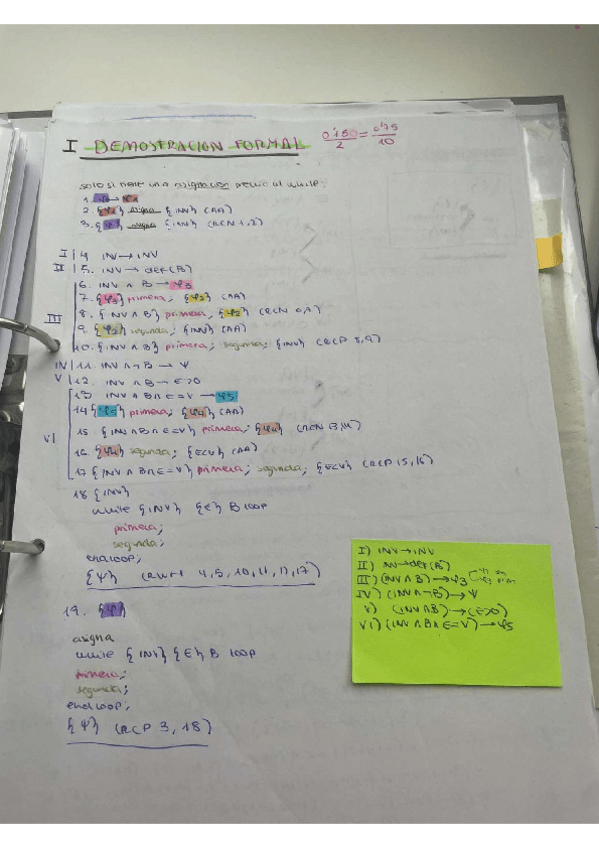 I DEMOSTRACION FORMAL 0'150/2 = 0'75/10
solo si tiene una asignación previo al while:
1. φ → φ1
2. {φ1} asigna {INV} (AA)
3. {φ} asigna {INV} (RCN 1,2)
I | 4. INV → INV
II | 5. INV → def(B)
6. INV ∧ B → φ3
7. {φ3} primera; {φ2} (AA)
III 8. {INV ∧ B} primera; {φ2} (RCN 6,7)
9. {φ2} segunda; {INV} (AA)
10. {INV ∧ B} primera; segunda; {INV} (RCP 8,9)
IV | 11. INV ∧ ¬B → ψ
V | 12. INV ∧ B → E>0
13 INV ∧ B ∧ E=V → φ5
14 {φ5} primera; {φ4} (AA)
15. {INV ∧ B ∧ E=V} primera; {φ4} (RCN 13,14)
VI 16. {φ4} segunda; {E<V} (AA)
17 {INV ∧ B ∧ E=V} primera; segunda; {E<V} (RCP 15,16)
18 {INV}
while {INV} {E} B loop
primera;
segunda;
endloop;
{ψ} (RWH 4,5,10,11,12,17)
19. {φ}
asigna
while {INV} {E} B loop
primera;
segunda;
endloop;
{ψ} (RCP 3,18)
I) INV → INV
II) INV → def(B)
III) (INV ∧ B) → φ3
IV) (INV ∧ ¬B) → ψ
V) (INV ∧ B) → (E>0)
VI) (INV ∧ B ∧ E=V) → φ5